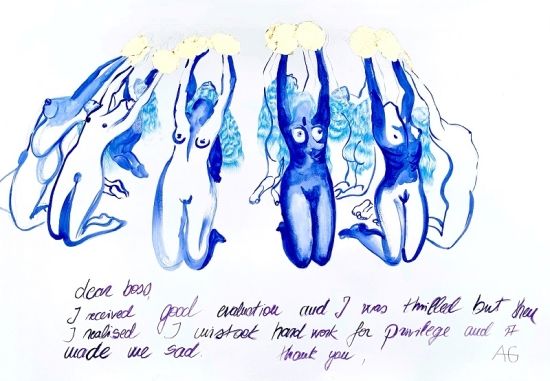 dear boss,
I received good evaluation and I was thrilled but then
I realised I mistook hard work for privilege and it
made me sad. thank you,
AG